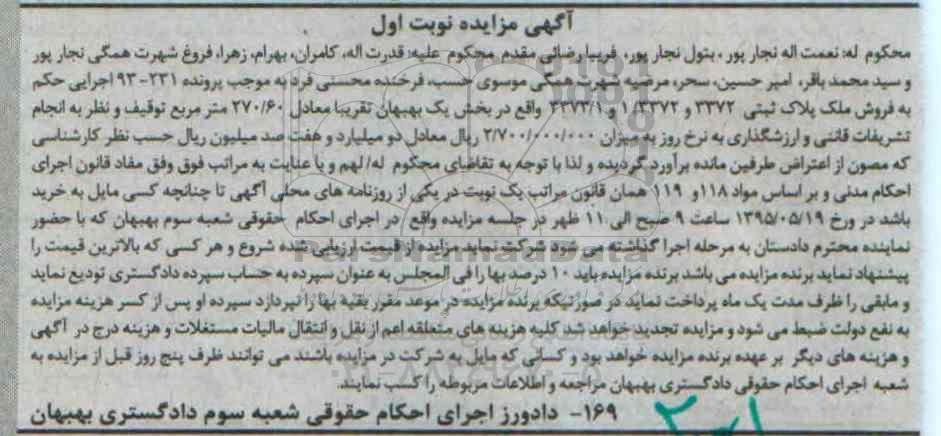 آگهی مزایده نوبت اول
محکوم له: نعمت اله نجار پور ، بتول نجار پور، فریبا رضائی مقدم محکوم علیه: قدرت اله، کامران، بهرام، زهرا، فروغ شهرت همگی نجار پور
و سید محمد باقر، امیر حسین، سحر، مرضیه شهرت همگی موسوی حسب، فرخنده محسنی فرد به موجب پرونده ۲۳۱-۹۳ اجرایی حکم
به فروش ملک پلاک ثبتی ۳۳۷۲ و ۱/۳۳۷۲ و ۳۳۷۳/۱ واقع در بخش یک بهبهان تقریبا معادل ۲۷۰/۶۰ متر مربع توقیف و نظر به انجام
تشریفات قانتی و ارزشگذاری به نرخ روز به میزان ۲/۷۰۰/۰۰۰/۰۰۰ ریال معادل دو میلیارد و هفت صد میلیون ریال حسب نظر کارشناسی
که مصون از اعتراض طرفین مانده برآورد گردیده و لذا با توجه به تقاضای محکوم له/ لهم و با عنایت به مراتب فوق وفق مفاد قانون اجرای
احکام مدنی و بر اساس مواد ۱۱۸و ۱۱۹ همان قانون مراتب یک نوبت در یکی از روزنامه های محلی آگهی تا چنانچه کسی مایل به خرید
باشد در ورخ ۱۳۹۵/۰۵/۱۹ ساعت ۹ صبح الی ۱۱ ظهر در جلسه مزایده واقع در اجرای احکام حقوقی شعبه سوم بهبهان که با حضور
نماینده محترم دادستان به مرحله اجرا گذاشته می شود شرکت نماید مزایده از قیمت ارزیابی شده شروع و هر کسی که بالاترین قیمت را
پیشنهاد نماید برنده مزایده می باشد برنده مزایده باید ۱۰ درصد بها را فی المجلس به عنوان سپرده به حساب سپرده دادگستری تودیع نماید
و مابقی را ظرف مدت یک ماه پرداخت نماید در صورتیکه برنده مزایده در موعد مقرر بقیه بها را نپردازد سپرده او پس از کسر هزینه مزایده
به نفع دولت ضبط می شود و مزایده تجدید خواهد شد کلیه هزینه های متعلقه اعم از نقل و انتقال مالیات مستغلات و هزینه درج در آگهی
و هزینه های دیگر بر عهده برنده مزایده خواهد بود و کسانی که مایل به شرکت در مزایده باشند می توانند ظرف پنج روز قبل از مزایده به
شعبه اجرای احکام حقوقی دادگستری بهبهان مراجعه و اطلاعات مربوطه را کسب نمایند.
۱۶۹- دادورز اجرای احکام حقوقی شعبه سوم دادگستری بهبهان
ParsNamadData